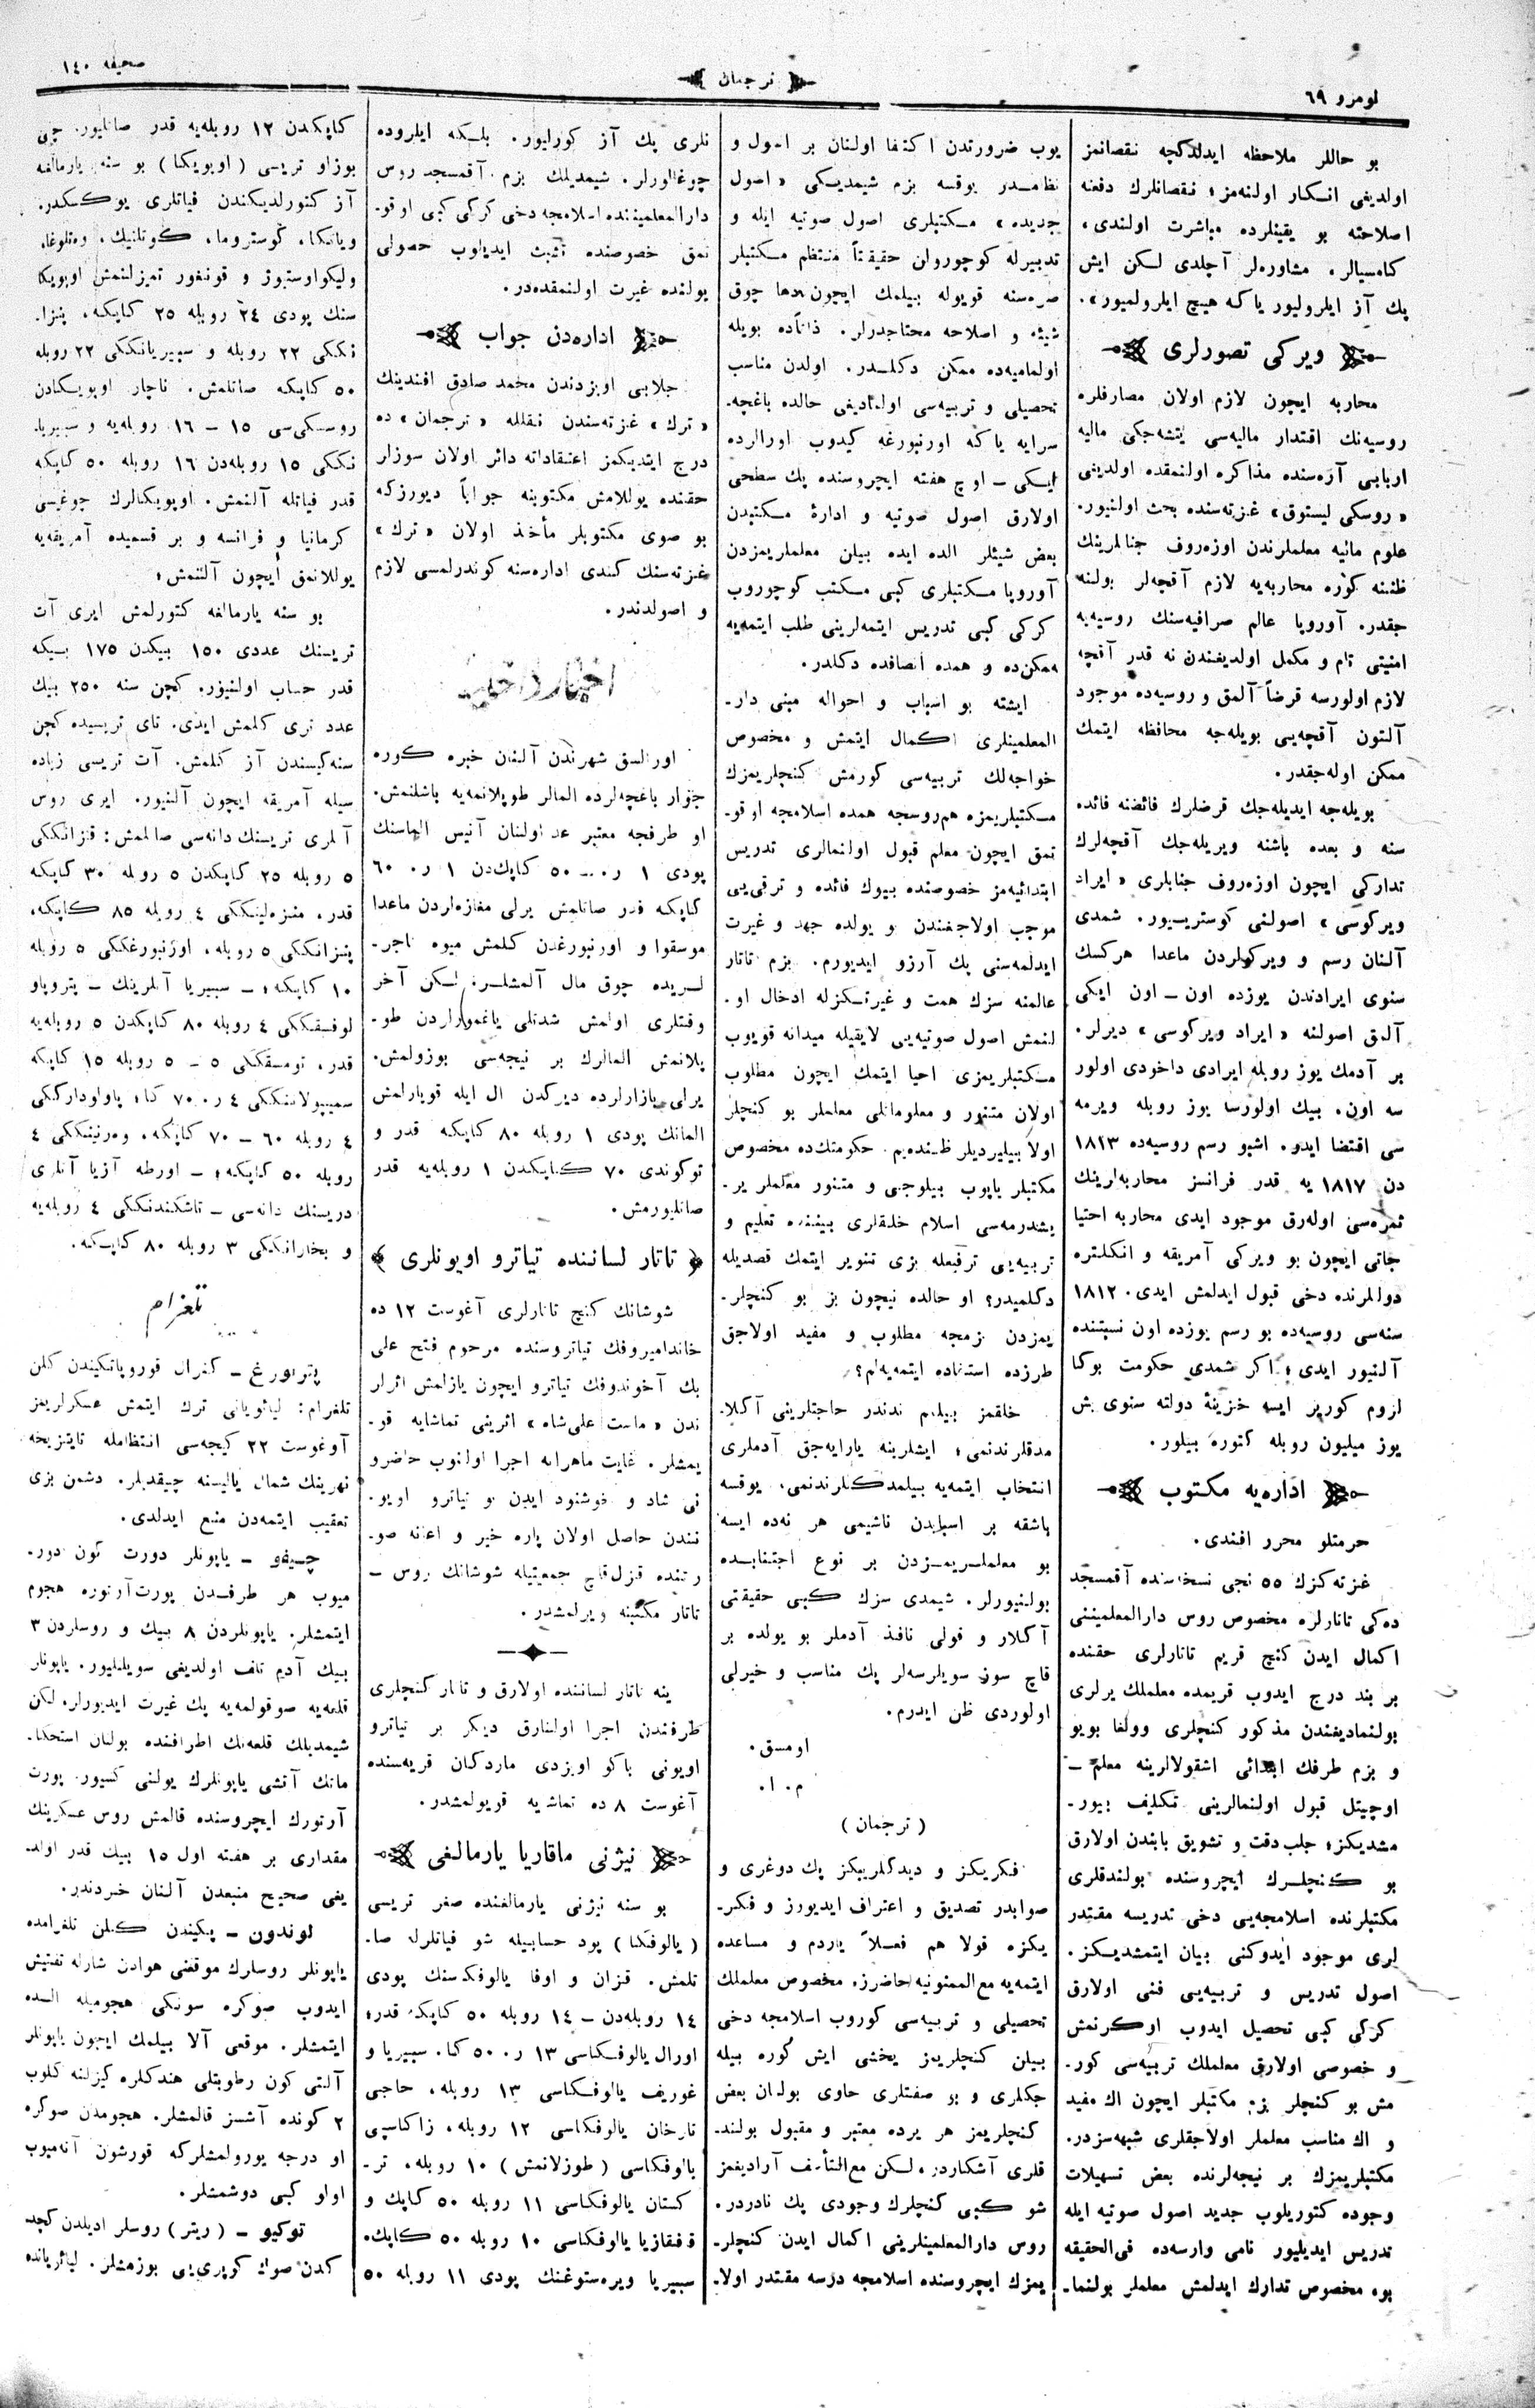 نومرو ٦٩
ترجمان
صحیفه ١٤٠
بو حاللر ملاحظه ایدلدكجه نقصانمز
اولدیغی انكار اولنه‌مز؛ نقصانلرك دفعنه
اصلاحنه بو یقینلرده مباشرت اولندی،
كامسیالر، مشاوره‌لر آچلدی لكن ایش
پك آز ایلرولیور یاكه هیچ ایلرولمیور».
ویركی تصورلری
محاربه ایچون لازم اولان مصارفلره
روسیه‌نك اقتدار مالیه‌سی یتشه‌جكی مالیه
اربابی آره‌سنده مذاكره اولنمقده اولدیغی
«روسكی لیستوق» غزته‌سنده بحث اولنیور.
علوم مالیه معلملرندن اوزه‌روف جنابلرینك
ظننه كوره محاربه‌یه لازم آقچه‌لر بولنه
جقدر. آوروپا عالم صرافیه‌سنك روسیه‌یه
امنیتی تام و مكمل اولدیغندن نه قدر آقچه
لازم اولورسه قرضاً آلمق و روسیه‌ده موجود
آلتون آقچه‌یی بویله‌جه محافظه ایتمك
ممكن اوله‌جقدر.
بویله‌جه ایدیله‌جك قرضلرك فائضنه فائده
سنه و بعده باشنه ویریله‌جك آقچه‌لرك
تداركی ایچون اوزه‌روف جنابلری «ایراد
ویركوسی» اصولنی كوستریییور. شمدی
آلنان رسم و ویركولردن ماعدا هركسك
سنوی ایرادندن یوزده اون ــ اون ایكی
آلمق اصولنه «ایراد ویركوسی» دیرلر.
بر آدمك یوز روبله ایرادی داخودی اولور
سه اون، بیك اولورسا یوز روبله ویرمه
سی اقتضا ایدر. اشبو رسم روسیه‌ده ١٨١٣
دن ١٨١٧ یه قدر فرانسز محاربه‌لرینك
ثمره‌سی اوله‌رق موجود ایدی محاربه احتیا
جاتی ایچون بو ویركی آمریقه و انكلتره
دوللرنده دخی قبول ایدلمش ایدی. ١٨١٢
سنه‌سی روسیه‌ده بو رسم یوزده اون نسبتنده
آلنیور ایدی؛ اكر شمدی حكومت بوكا
لزوم كوریر ایسه خزینۀ دولته سنوی بش
یوز میلیون روبله كتوره بیلور.
اداره‌یه مكتوب
حرمتلو محرر افندی.
غزته‌كزك ٥٥ نجی نسخه‌سنده آقمسجد
ده‌كی تاتارلره مخصوص روس دارالمعلمیننی
اكمال ایدن كنچ قریم تاتارلری حقنده
بر بند درج ایدوب قریمده معلملك یرلری
بولنمادیغندن مذكور كنچلری وولغا بویو
و بزم طرفك ابتدائی اشقولالرینه معلم ــ
اوچیتل قبول اولنمالرینی تكلیف بیور-
مشدیكز؛ جلب دقت و تشویق بابندن اولارق
بو كنچلرك ایچروسنده بولندقلری
مكتبلرنده اسلامجه‌یی دخی تدریسه مقتدر
لری موجود ایدوكنی بیان ایتمشدیكز.
اصول تدریس و تربیه‌یی فنی اولارق
كركی كبی تحصیل ایدوب اوكرنمش
و خصوصی اولارق معلملك تربیه‌سی كور-
مش بو كنچلر بزم مكتبلر ایچون اك مفید
و اك مناسب معلملر اولاجقلری شبهه‌سزدر.
مكتبلریمزك بر نیجه‌لرنده بعض تسهیلات
وجوده كتوریلوب جدید اصول صوتیه ایله
تدریس ایدیلیور نامی وارسه‌ده فی‌الحقیقه
بوه مخصوص تدارك ایدلمش معلملر بولنما-
یوب ضرورتدن اكتفا اولنان بر اصول و
نظامدر یوقسه بزم شیمدیكی «اصول
جدیده» مكتبلری اصول صوتیه ایله و
تدبیرله كوچوروان حقیقتاً منتظم مكتبلر
صره‌سنه قویوله بیلمك ایچون دها چوق
شیئه و اصلاحه محتاجدرلر. ذاتاًده بویله
اولمامیه‌ده ممكن دكلدر. اولدن مناسب
تحصیلی و تربیه‌سی اولمادیغی حالده باغچه-
سرایه یاكه اورنبورغه كیدوب اورالرده
ایكی ــ اوچ هفته ایچروسنده پك سطحی
اولارق اصول صوتیه و ادارۀ مكتبدن
بعض شیئلر الده ایده بیلن معلملریمزدن
آوروپا مكتبلری كبی مكتب كوچوروب
كركی كبی تدریس ایتمه‌لرینی طلب ایتمه‌یه
ممكن‌ده و همده انصافده دكلدر.
ایشته بو اسباب و احواله مبنی دار-
المعلمینلری اكمال ایتمش و مخصوص
خواجه‌لك تربیه‌سی كورمش كنچلریمزك
مكتبلریمزه هم‌روسجه همده اسلامجه اوقو-
تمق ایچون معلم قبول اولنمالری تدریس
ابتدائیه‌مز خصوصنده بیوك فائده و ترقی‌یی
موجب اولاجغندن بو یولده جهد و غیرت
ایدلمه‌سنی پك آرزو ایدیورم. بزم تاتار
عالمنه سزك همت و غیرتكزله ادخال او-
لنمش اصول صوتیه‌یی لایقیله میدانه قویوب
مكتبلریمزی احیا ایتمك ایچون مطلوب
اولان متنور و معلوماتلی معلملر بو كنچلر
اولا بیلیردیلر ظننده‌یم. حكومتك‌ده مخصوص
مكتبلر یاپوب بیلوجی و متنور معلملر یر-
یشدرمه‌سی اسلام خلقلری بیننده تعلیم و
تربیه‌یی ترقیعله بزی تنویر ایتمك قصدیله
دكلمیدر؟ او حالده نیچون بز بو كنچلر-
یمزدن بزمجه مطلوب و مفید اولاجق
طرزده استفاده ایتمه‌یه‌لم؟
خلقمز بیلم ندندر حاجتلرینی آكلا-
مدقلرندنمی؛ ایشلرینه یارایه‌جق آدملری
انتخاب ایتمه‌یه بیلمدكلرندنمی، یوقسه
باشقه بر اسبابدن ناشیمی هر نه‌ده ایسه
بو معلملریمزدن بر نوع اجتنابده
بولنیورلر. شیمدی سزك كبی حقیقتی
آكلار و قولی نافذ آدملر بو یولده بر
قاچ سوز سویلرسه‌لر پك مناسب و خیرلی
اولوردی ظن ایدرم.
اومسق.
م. ا.
(ترجمان)
فكریكز و دیدكلریبكز پك دوغری و
صوابدر تصدیق و اعتراف ایدیورز و فكر-
یكزه قولا هم فعلاً یاردم و مساعده
ایتمه‌یه مع‌الممنونیه حاضرز. مخصوص معلملك
تحصیلی و تربیه‌سی كوروب اسلامجه دخی
بیلن كنچلریمز یخشی ایش كوره بیله
جكلری و بو صفتلری حاوی بولنان بعض
كنچلریمز هر یرده معتبر و مقبول بولند-
قلری آشكاردر، لكن مع‌التأسف آرادیغمز
شو كبی كنچلرك وجودی پك نادردر.
روس دارالمعلمینلرینی اكمال ایدن كنچلر-
یمزك ایچروسنده اسلامجه درسه مقتدر اولا-
نلری پك آز كورلیور. بلكه ایلروده
چوغالورلر. شیمدیلك بزم آقمسجد روس
دارالمعلمیننده اسلامجه دخی كركی كبی اوقو-
تمق خصوصنده تثبث ایدیلوب حصولی
یولنده غیرت اولنمقده‌در.
اداره‌دن جواب
جلابی اویزدندن محمد صادق افندینك
«ترك» غزته‌سندن نقلله «ترجمان» ده
درج ایتدیكمز اعتقاداته دائر اولان سوزلر
حقنده یوللامش مكتوبنه جواباً دیورزكه
بو صوی مكتوبلر مأخذ اولان «ترك»
غزته‌سنك كندی اداره‌سنه كوندرلمسی لازم
و اصولدندر.
اخبار داخلیه
اورالسق شهرندن آلنان خبره كوره
جوار باغچه‌لرده المالر طوپلانمه‌یه باشلنمش.
او طرفجه معتبر عد اولنان آنیس الماسنك
پودی ١ ر. ــ ٥٠ كاپك‌دن ١ ر. ٦٠
كاپكه قدر صاتلمش یرلی مغازه‌لردن ماعدا
موسقوا و اورنبورغدن كلمش میوه تاجر-
لریده چوق مال آلمشلر، لكن آخر
وقتلری اولمش شدتلی یاغمورلردن طو-
پلانمش المالرك بر نیجه‌سی بوزولمش.
یرلی بازارلرده دیركدن ال ایله قوپارلمش
المانك پودی ١ روبله ٨٠ كاپكه قدر و
توكوندی ٧٠ كاپكدن ١ روبله‌یه قدر
صاتلیورمش.
تاتار لساننده تیاترو اویونلری
شوشانك كنچ تاتارلری آغوست ١٢ ده
خاندامیروفك تیاتروسنده مرحوم فتح علی
بك آخوندوفك تیاترو ایچون یازلمش اثرلر
ندن «مست علی‌شاه» اثرینی تماشایه قو-
یمشلر. غایت ماهرانه اجرا اولنوب حاضرو
نی شاد و خوشنود ایدن بو تیاترو اویو-
نندن حاصل اولان پاره خیر و اعانه صو-
رتنده قزل‌قاچ جمعیتیله شوشانك روس ــ
تاتار مكتبنه ویرلمشدر.
ینه تاتار لساننده اولارق و تاتار كنچلری
طرفندن اجرا اولنارق دیكر بر تیاترو
اویونی باكو اویزدی ماردكان قریه‌سنده
آغوست ٨ ده تماشیه قویولمشدر.
نیژنی ماقاریا یارمالغی
بو سنه نیژنی یارمالغنده صغر تریسی
(یالوفكا) پود حسابیله شو قیاتلرله صا-
تلمش. قزان و اوفا یالوفكه‌سنك پودی
١٤ روبله‌دن ــ ١٤ روبله ٥٠ كاپكه قدر؛
اورال یالوفكاسی ١٣ ر. ٥٠ كا. سبیریا و
غوریف یالوفكاسی ١٣ روبله، حاجی
تارخان یالوفكاسی ١٢ روبله، زاكاسپی
یالوفكاسی (طوزلانمش) ١٠ روبله، تر-
كستان یالوفكاسی ١١ روبله ٥٠ كاپك و
قفقازیا یالوفكاسی ١٠ روبله ٥٠ كاپك.
سبیریا ویره‌ستوغنك پودی ١١ روبله ٥٠
كاپكدن ١٢ روبله‌یه قدر صاتلیور. چی
بوزاو تریسی (اوپویكا) بو سنه یارمالغه
آز كتورلدیكندن قیاتلری یوكسكدر.
ویاتكا، كوستروما، كوتلنیك، وه‌تلوغا،
ولیكواوستیوژ و قونغور تمیزلنمش اوپویكا
سنك پودی ٢٤ روبله ٢٥ كاپكه، پنزا-
نككی ٢٢ روبله و سبیریانككی ٢٢ روبله
٥٠ كاپكه صاتلمش. ناچار اوپویكادن
روسكی‌سی ١٥ ــ ١٦ روبله‌یه و سبیریا-
نككی ١٥ روبله‌دن ١٦ روبله ٥٠ كاپكه
قدر قیاتله آلنمش. اوپویكالرك چوغیسی
كرمانیا و فرانسه و بر قسمیده آمریقه‌یه
یوللانمق ایچون آلنمش؛
بو سنه یارمالغه كتورلمش ایری آت
تریسنك عددی ١٥٠ بیكدن ١٧٥ بیكه
قدر حساب اولنیور. كچن سنه ٢٥٠ بیك
عدد تری كلمش ایدی. تای تریسیده كچن
سنه‌كیسندن آز كلمش. آت تریسی زیاده
سیله آمریقه ایچون آلنیور. ایری روس
آتلری تریسنك دانه‌سی صاتلمش: قزانككی
٥ روبله ٢٥ كاپكدن ٥ روبله ٣٠ كاپكه
قدر، منزه‌لینككی ٤ روبله ٨٥ كاپكه،
پنزانككی ٥ روبله، اورنبورغككی ٥ روبله
١٠ كاپكه؛ ــ سبیریا آتلرینك ــ پتروپاو
لوفسقككی ٤ روبله ٨٠ كاپكدن ٥ روبله‌یه
قدر، تومسقككی ٥ ــ ٥ روبله ١٥ كاپكه
سمیپولاتنككی ٤ ر. ٧٠ كا؛ پاولودارككی
٤ روبله ٦٠ ــ ٧٠ كاپكه، وه‌رنینككی ٤
روبله ٥٠ كاپكه؛ ــ اورطه آزیا آتلری
دریسنك دانه‌سی ــ تاشكندنككی ٤ روبله‌یه
و بخارانككی ٣ روبله ٨٠ كاپكه.
تلغرام
پتربورغ ــ كنرال قوروپاتكیندن كلن
تلغرام: لیائویانی ترك ایتمش عسكرلریمز
آوغوست ٢٢ كیجه‌سی انتظامله تایتزیخه
نهرینك شمال یالیسنه چیقدیلر. دشمن بزی
تعقیب ایتمه‌دن منع ایدلدی.
چیفو ــ یاپونلر دورت كون دور-
میوب هر طرفدن پورت‌آرتوره هجوم
ایتمشلر. یاپونلردن ٨ بیك و روسلردن ٣
بیك آدم تلف اولدیغی سویلیلیور. یاپونلر
قلعه‌یه صوقولمه‌یه پك غیرت ایدیورلر، لكن
شیمدیلك قلعه‌نك اطرافنده بولنان استحكا-
ماتك آتشی یاپونلرك یولنی كسیور. پورت
آرتورك ایچروسنده قالمش روس عسكرینك
مقداری بر هفته اول ١٥ بیك قدر اولد-
یغی صحیح منبعدن آلنان خبردندر.
لوندون ــ پكیندن كلن تلغرامده
یاپونلر روسلرك موقعنی هوادن شارله تفتیش
ایدوب صوكره سونكی هجومیله الده
ایتمشلر. موقعی آلا بیلمك ایچون یاپونلر
آلتی كون رطوبتلی هندكلره كیزلنه كلوب
٢ كونده آشسز قالمشلر. هجومدن صوكره
او درجه یورولمشلركه قورشون آته‌میوب
اولو كبی دوشمشلر.
توكیو ــ (ریتر) روسلر ادیلدن كچد-
كدن صوك كوپری‌یی بوزمشلر. لیائویانده